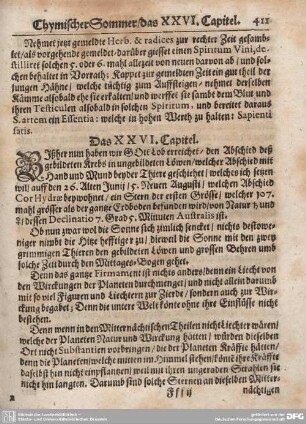 Chymischer Sommer/das XXVI. Capitel. 411
Nehmet jetzt gemeldte Herb. & radices zur rechter Zeit gesambs
let/als vorgehende gemeldet/darüber giesset einen Spiritum Vini, de-
stilliret solchen 5. oder 6. mahl allezeit von neuen darvon ab/ und sol-
chen behaltet in Vorrath; Kappet zur gemeldten Zeit ein gut theil der
jungen Hähne/ welche tüchtig zum Auffsteigen/ nehmet derselben
Kämme alsobald ehe sie erkalten/ und werffet sie sambt dem Blut und
ihren Testiculen alsobald in solchen Spiritum, und bereitet daraus
S. artem ein Essentia: welche in hohen Werth zu halten: Sapienti
satis.
Das XXVI. Capitel.
Bißher nun haben wir GOtt Lob erreichet/ den Abschied deß
gebildeten Krebs in ungebildeten Löwen/ welcher Abschied mit
Hand und Mund beyder Thiere geschiehet/ welches ich setzen
wil/ auff den 26. Alten Junij/ 5. Neuen Augusti/ welchen Abschied
Cor Hydræ beywohnet/ ein Stern der ersten Grösse/ welcher 107.
mahl grösser als der gantze Erdboden befunden wird/von Natur ♄ und
♀/ dessen Declinatio 7. Grad 5. Minuten Australis ist.
Ob nun zwar wol die Sonne sich zimlich sencket/ nichts destowe-
niger nimbt die Hitze hefftiger zu/ dieweil die Sonne mit den zwey
grimmigen Thieren den gebildeten Löwen und grossen Behren und
solche Zeit durch den Mittages-Bogen gehet.
Denn das gantze Firmament ist nichts anders/denn ein Liecht von
den Wirckungen der Planeten durchmenget/ und nicht allein darumb
mit so viel Figuren und Liechtern zur Zierde/ sondern auch zur Wir-
ckung begabet; Denn die untere Welt könte ohne ihr Einflüsse nicht
bestehen.
Denn wenn in den Mitternächtischen Theilen nicht Liechter wären/
welche der Planeten Natur und Wirckung hätten/ würden dieselben
Ort nicht Substantien vorbringen/ die der Planeten Kräffte hätten/
denn die Planeten/welche mitten im Himmel stehen/ könte ihre Kräffte
daselbst hin nicht einpflantzen/ weil mit ihren ungeraden Strahlen sie
nicht hin langten. Darumb sind solche Sternen an dieselben Mitter-
nächtigen